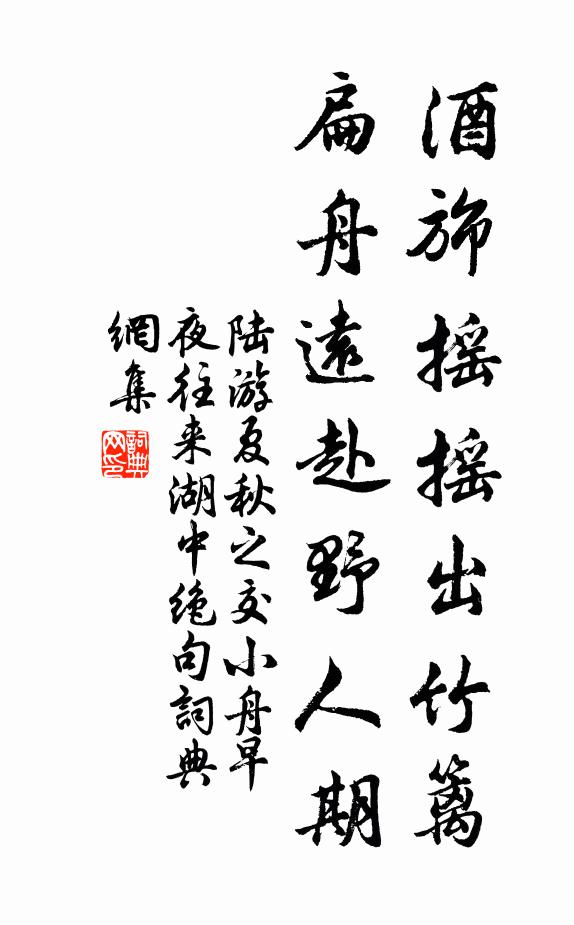 酒旆摇摇出竹篱
扁舟遠赴野人期
陆游夏秋之交小舟早
夜往来湖中绝句詞典
網集
詞典
网印